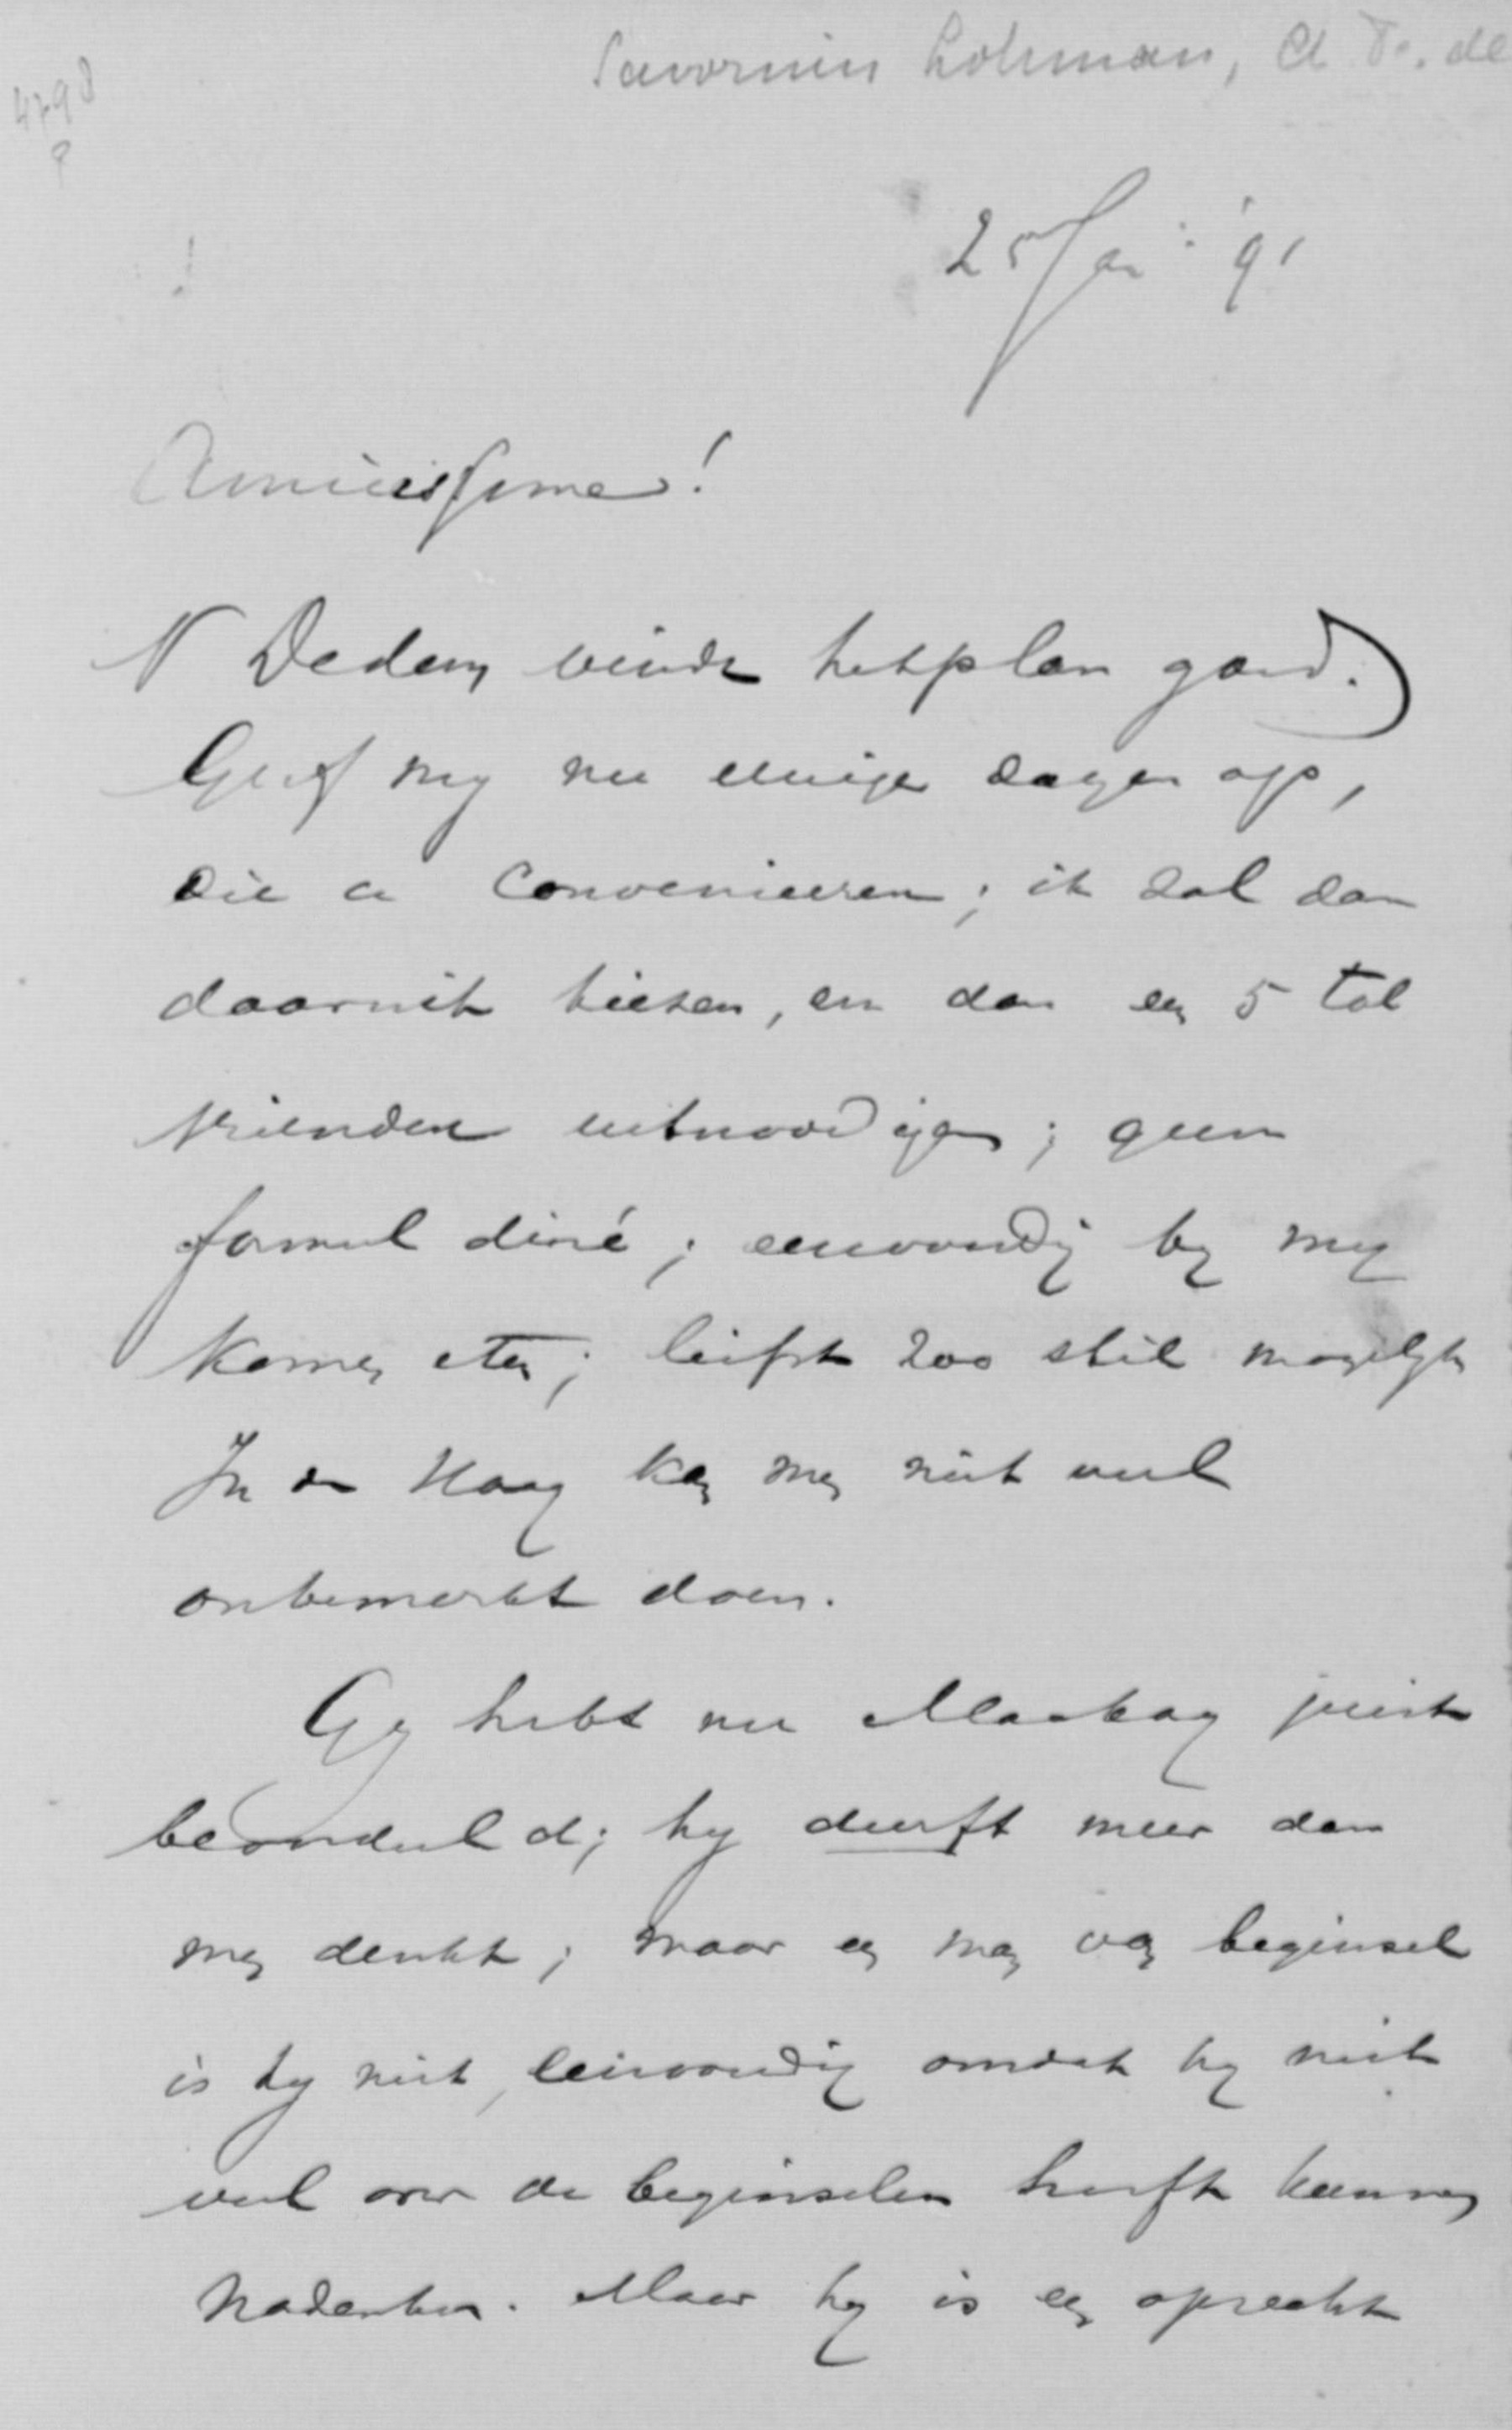 Savornin Lohman, A. F. de
4798
25 Jan: '91
Amicissime!
V Dedem vindt het plan goed.
Geef my nu eenige dagen op,
die u convenieeren; ik zal dan
daaruit kiezen, en dan een 5 tal
vrienden uitnoodigen; geen
formeel diné; eenvoudig by my
komen eten; liefst zoo stil mogelyk
In den Haag kan men niet veel
onbemerkt doen.
Gy hebt nu Mackay juist
beoordeeld; hy durft meer dan
men denkt; maar een man van beginsel
is hy niet, eenvoudig omdat hy niet
veel over de beginselen heeft kunnen
nadenken. Maar hy is een oprecht